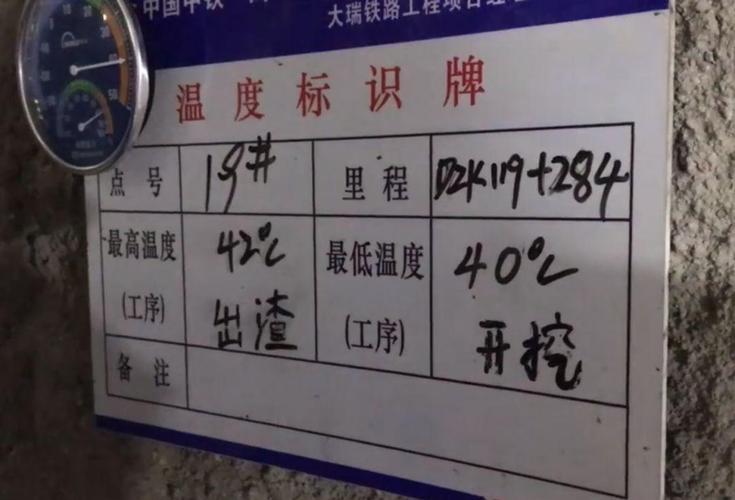 中国中铁
大瑞铁路工程项目经
温度标识牌
点号 19# 里程 D2K119+284
最高温度 42℃ 最低温度 40℃
(工序) 出渣 (工序) 开挖
备注